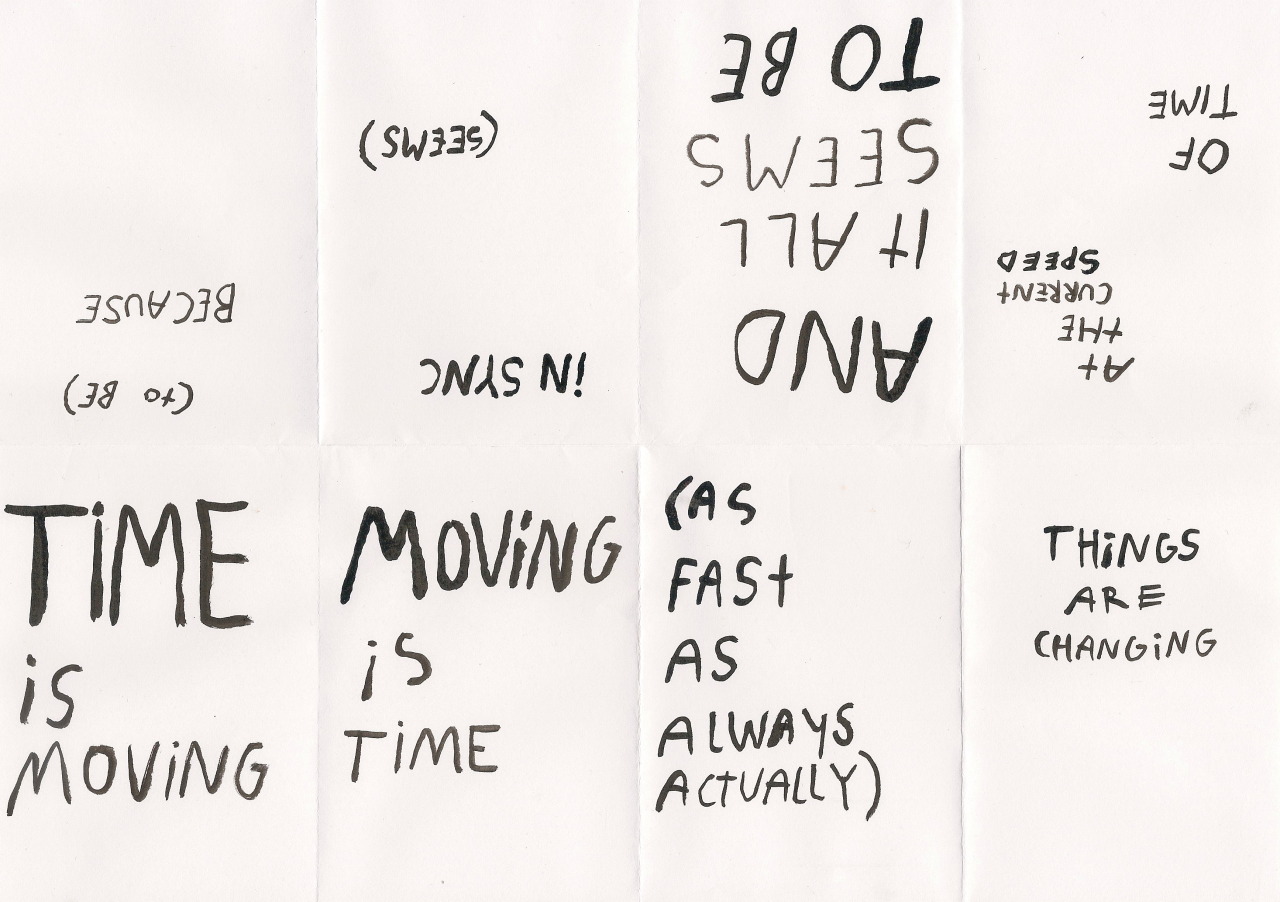 TiME
iS
MOViNG
MOViNG
iS
TiME
(AS
FASt
AS
ALWAYS
ACtUALLY)
THiNGS
ARE
CHANGiNG
At
tHE
CURRENt
SPEED
OF
TIME
AND
It ALL
SEEMS
TO BE
iN SYNC
(SEEMS)
(to BE)
BECAUSE